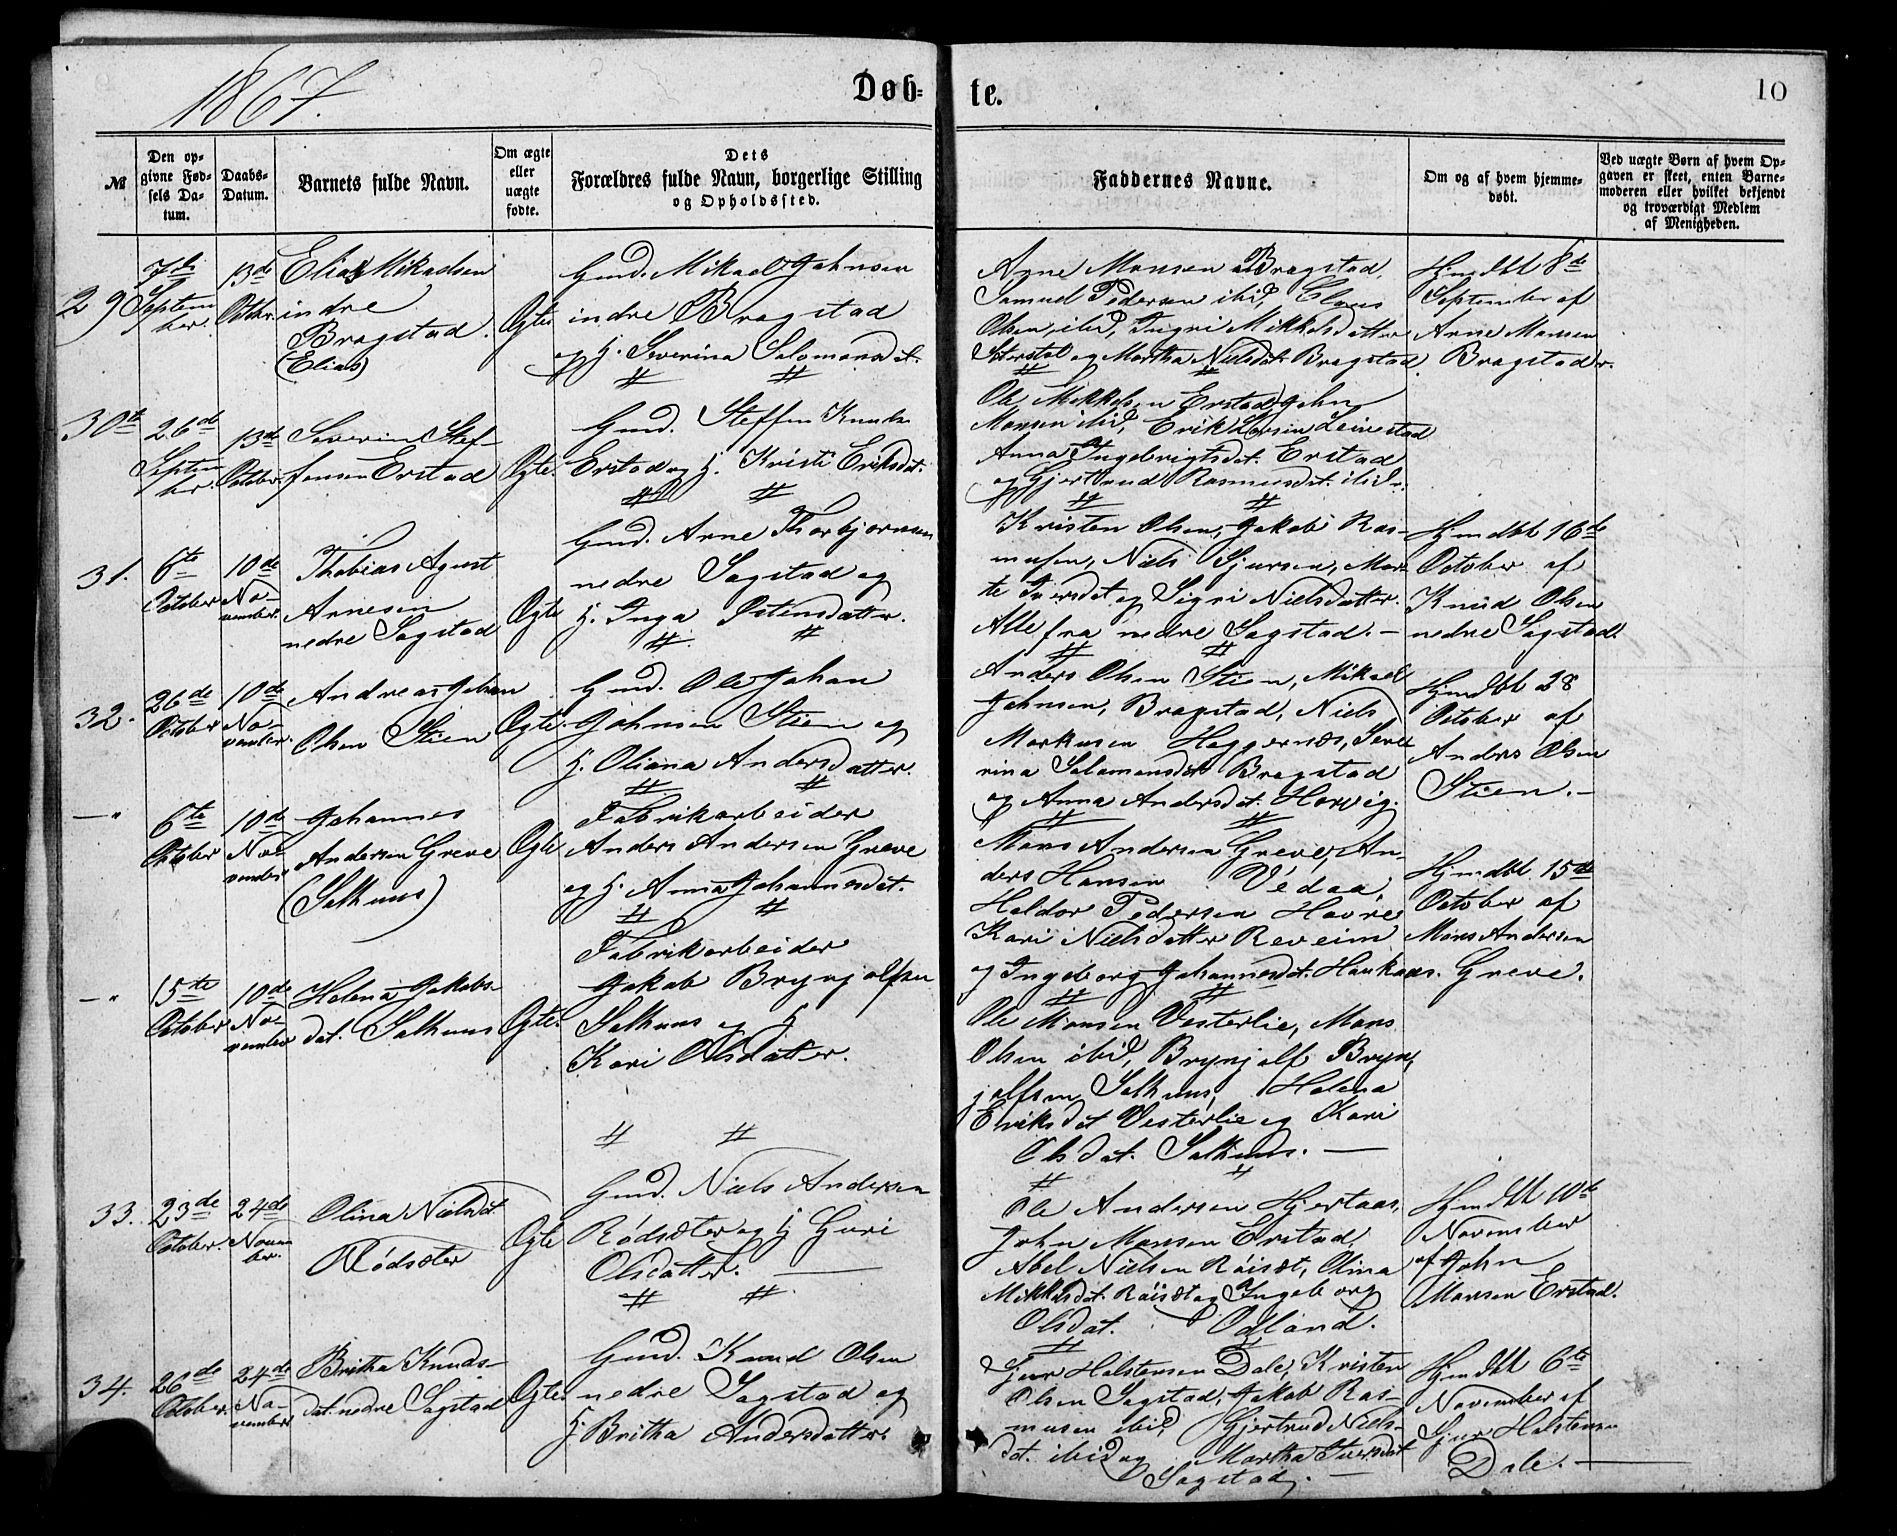 1867.
Døb-
te.
10
№
Den op-
givne Fød-
sels Da-
tum.
Daabs-
Datum.
Barnets fulde Navn.
Om ægte
eller
uægte
fødte.
Dets
Forældres fulde Navn, borgerlige Stilling
og Opholdssted.
Faddernes Navne.
Om og af hvem hjemme-
døbt.
Ved uægte Børn af hvem Op-
gaven er skeet, enten Barne-
moderen eller hvilket bekjendt
og troværdigt Medlem
af Menigheden.
29
7de
Septem
ber.
13de
Octbr.
Elias Mikaelsen
indre
Bragstad.
(Elias)
Ogte
Gmd. Mikael Johnsen
indre Bragstad
og H. Severina Salomonsdat.
Arne Monsen Bragstad,
Samuel Pedersen ibid,
Olsen, ibid, Ingri Mikkelsdatter
og Martha Nielsdat Bragstad
Hjmdbt 8de
September af
Arne Monsen
Bragstad.
30te
26de
Septem
ber.
13de
October.
Severin Stef
fensen Erstad
Ogte.
Gmd. Steffen Knuds.
Erstad og H. Kristi Eriksdat.
Ole Mikkelsen Erstad, John
Monsen ibid, Erik Larsen Leirestad
Anna Ingebrigtsdat. Erstad
og Gjertrud Rasmusdat. ibid.
31.
6te
October
10de
No-
vember.
Thobias Agust
Arnesen
nedre Sagstad
Ogte
Gmd. Arne Thorbjørnsen
nedre Sagstad og
H. Inga Østensdatter.
Kristen Olsen, Jakob Ras-
musen, Niels Sjursen, Mar-
te Iversdat og Sigri Nielsdatter.
Alle fra nedre Sagstad. -
Hjmdbt 16de
October af
Knud Olsen
nedre Sagstad.
32.
26de
October
10de
No-
vember.
Andreas Johan
Olsen Stien
Ogte.
Gmd. Ole Johan
Johnsen Stien og
H. Oliana Andersdatter.
Anders Olsen Stien, Mikael
Johnsen, Bragstad, Niels
Markusen Haggernæs, Seve
rina Salamonsdat Bragstad
og Anna Andersdat. Horvig.
Hjmdbt 28
October af
Anders Olsen
Stien. -
- "
6te
October
10de
No-
vember
Johannes
Andersen Greve
(Salhuus)
Ogte
Fabrikarbeider
Anders Andersen Greve
og H. Anna Johannesdat.
Mons Andersen Greve, An-
ders Hansen Vedaa,
Haldor Pedersen Havre
Kari Nielsdatter Reveim
og Ingeborg Johannesdat. Haukaas.
Hjmdbt 15de
October af
Mons Andersen
Greve.
- "
15te
October
10de
No-
vember
Helena Jakobs-
dat. Salhuus
Ogte.
Fabrikarbeider
Jakob Brynjolfsen
Salhuus og H
Kari Olsdatter.
Ole Monsen Vesterlie, Mons
Olsen ibid, Brynjolf Bryn-
jolfsen Salhuus, Helena
Eriksdat Vesterlie og Kari
Olsdat. Salhuus. -
33.
23de
October.
24de
Novem
ber.
Olina Nielsdt
Rødsæter
Ogte
Gmd. Niels Andersen
Rødsæter og H Guri
Olsdatter. -
Ole Andersen Hjertaas,
John Monsen Erstad,
Abel Nielsen Røisæt, Olina
Mikkelsdat. Røisæt og Ingeborg
Olsdat. Odland.
Hjmdbt 10de
November
af John
Monsen Erstad.
34.
26de
October.
24de
No-
vember
Britha Knuds-
dat. nedre Sagstad
Ogte
Gmd. Knud Olsen
nedre Sagstad og
H. Britha Andersdatter.
Sjur Halstensen Dale, Kristen
Olsen Sagstad, Jakob Ras-
musen ibid, Gjertrud Niels-
dat. ibid og Martha Iversdat
Sagstad. -
Hjmdbt 6te
November af
Sjur Halstensen
Dale. -